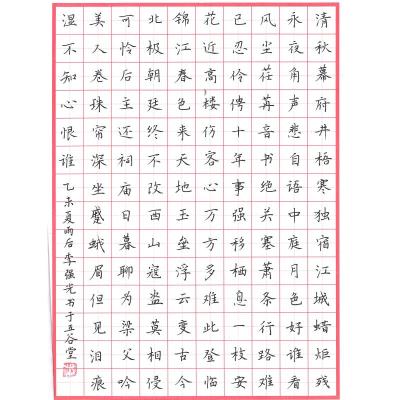 清秋幕府井梧寒独宿江城蜡炬残
永夜角声悲自语中庭月色好谁看
风尘荏苒音书绝关塞萧条行路难
已忍伶俜十年事强移栖息一枝安
花近高楼伤客心万方多难此登临
锦江春色来天地玉垒浮云变古今
北极朝廷终不改西山寇盗莫相侵
可怜后主还祠庙日暮聊为梁父吟
美人卷珠帘深坐蹙蛾眉但见泪痕
湿不知心恨谁 乙未夏雨后李强光书于五谷堂